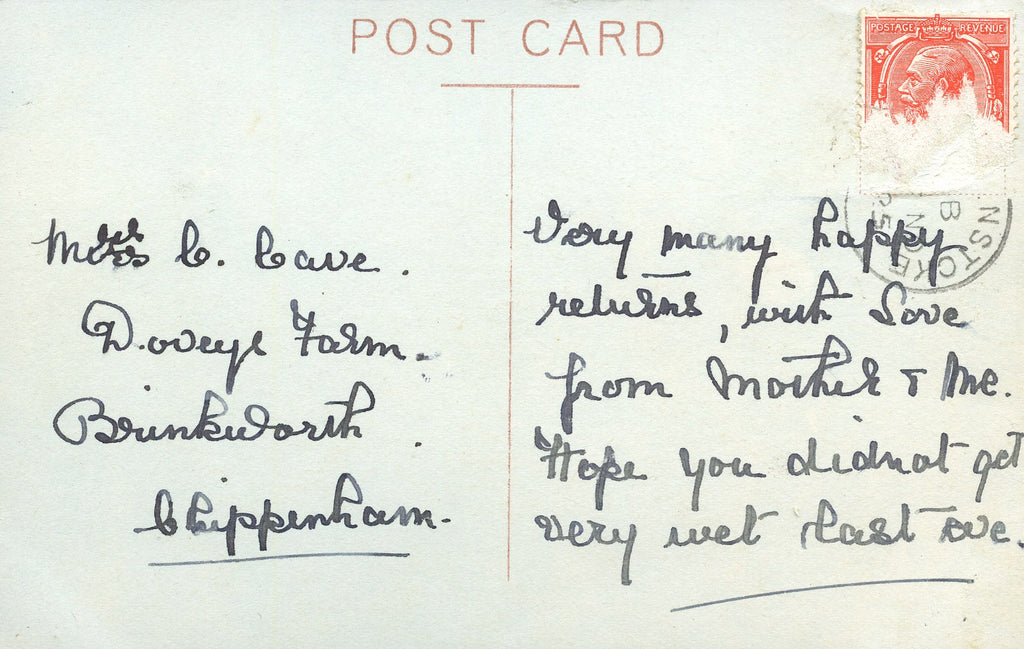 POST CARD
POSTAGE REVENUE
NSTOKE
B
25
C. Cave.
Doveys Farm.
Brinkworth.
Chippenham.
Very many happy
returns, with Love
from Mother & Me.
Hope you didnot get
very wet last eve.